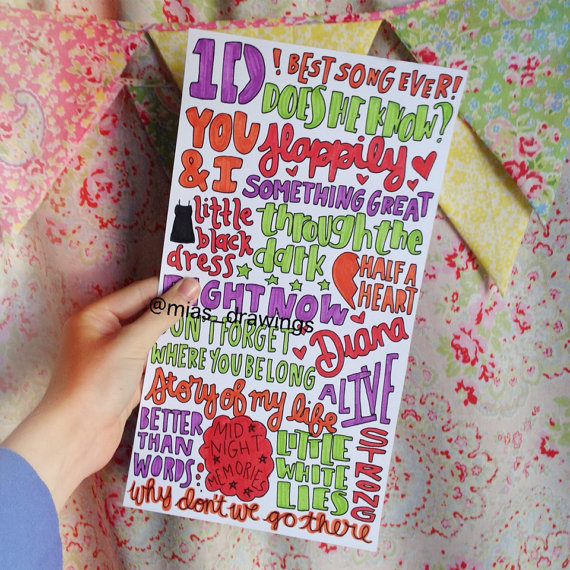 1D
! BEST SONG EVER!
DOES HE KNOW?
YOU
& I
Happily
SOMETHING GREAT
little
black
dress
through the
dark
HALF A
HEART
RIGHT NOW
@mias_drawings
DON'T FORGET
WHERE YOU BELONG
Diana
ALIVE
Story of my life
BETTER
THAN
WORDS:
MID
NIGHT
MEMORIES
LITTLE
WHITE
LIES
STRONG
why don't we go there